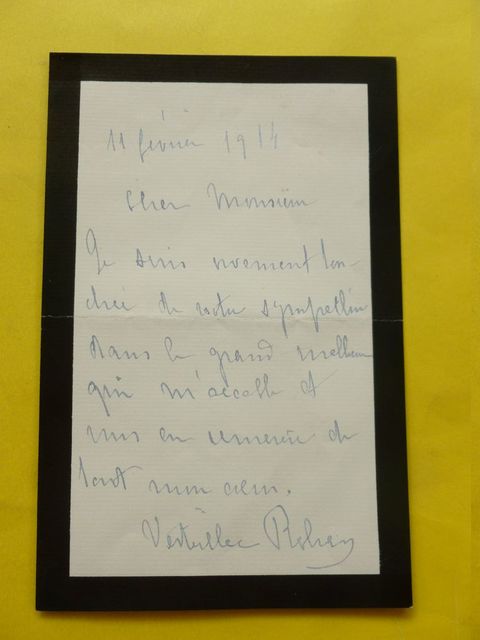 11 février 1914
Cher Monsieur
Je suis vivement tou-
chée de votre sympathie
dans le grand malheur
qui m'accable et
vous en remercie de
tout mon cœur.
Verteillac Rohan